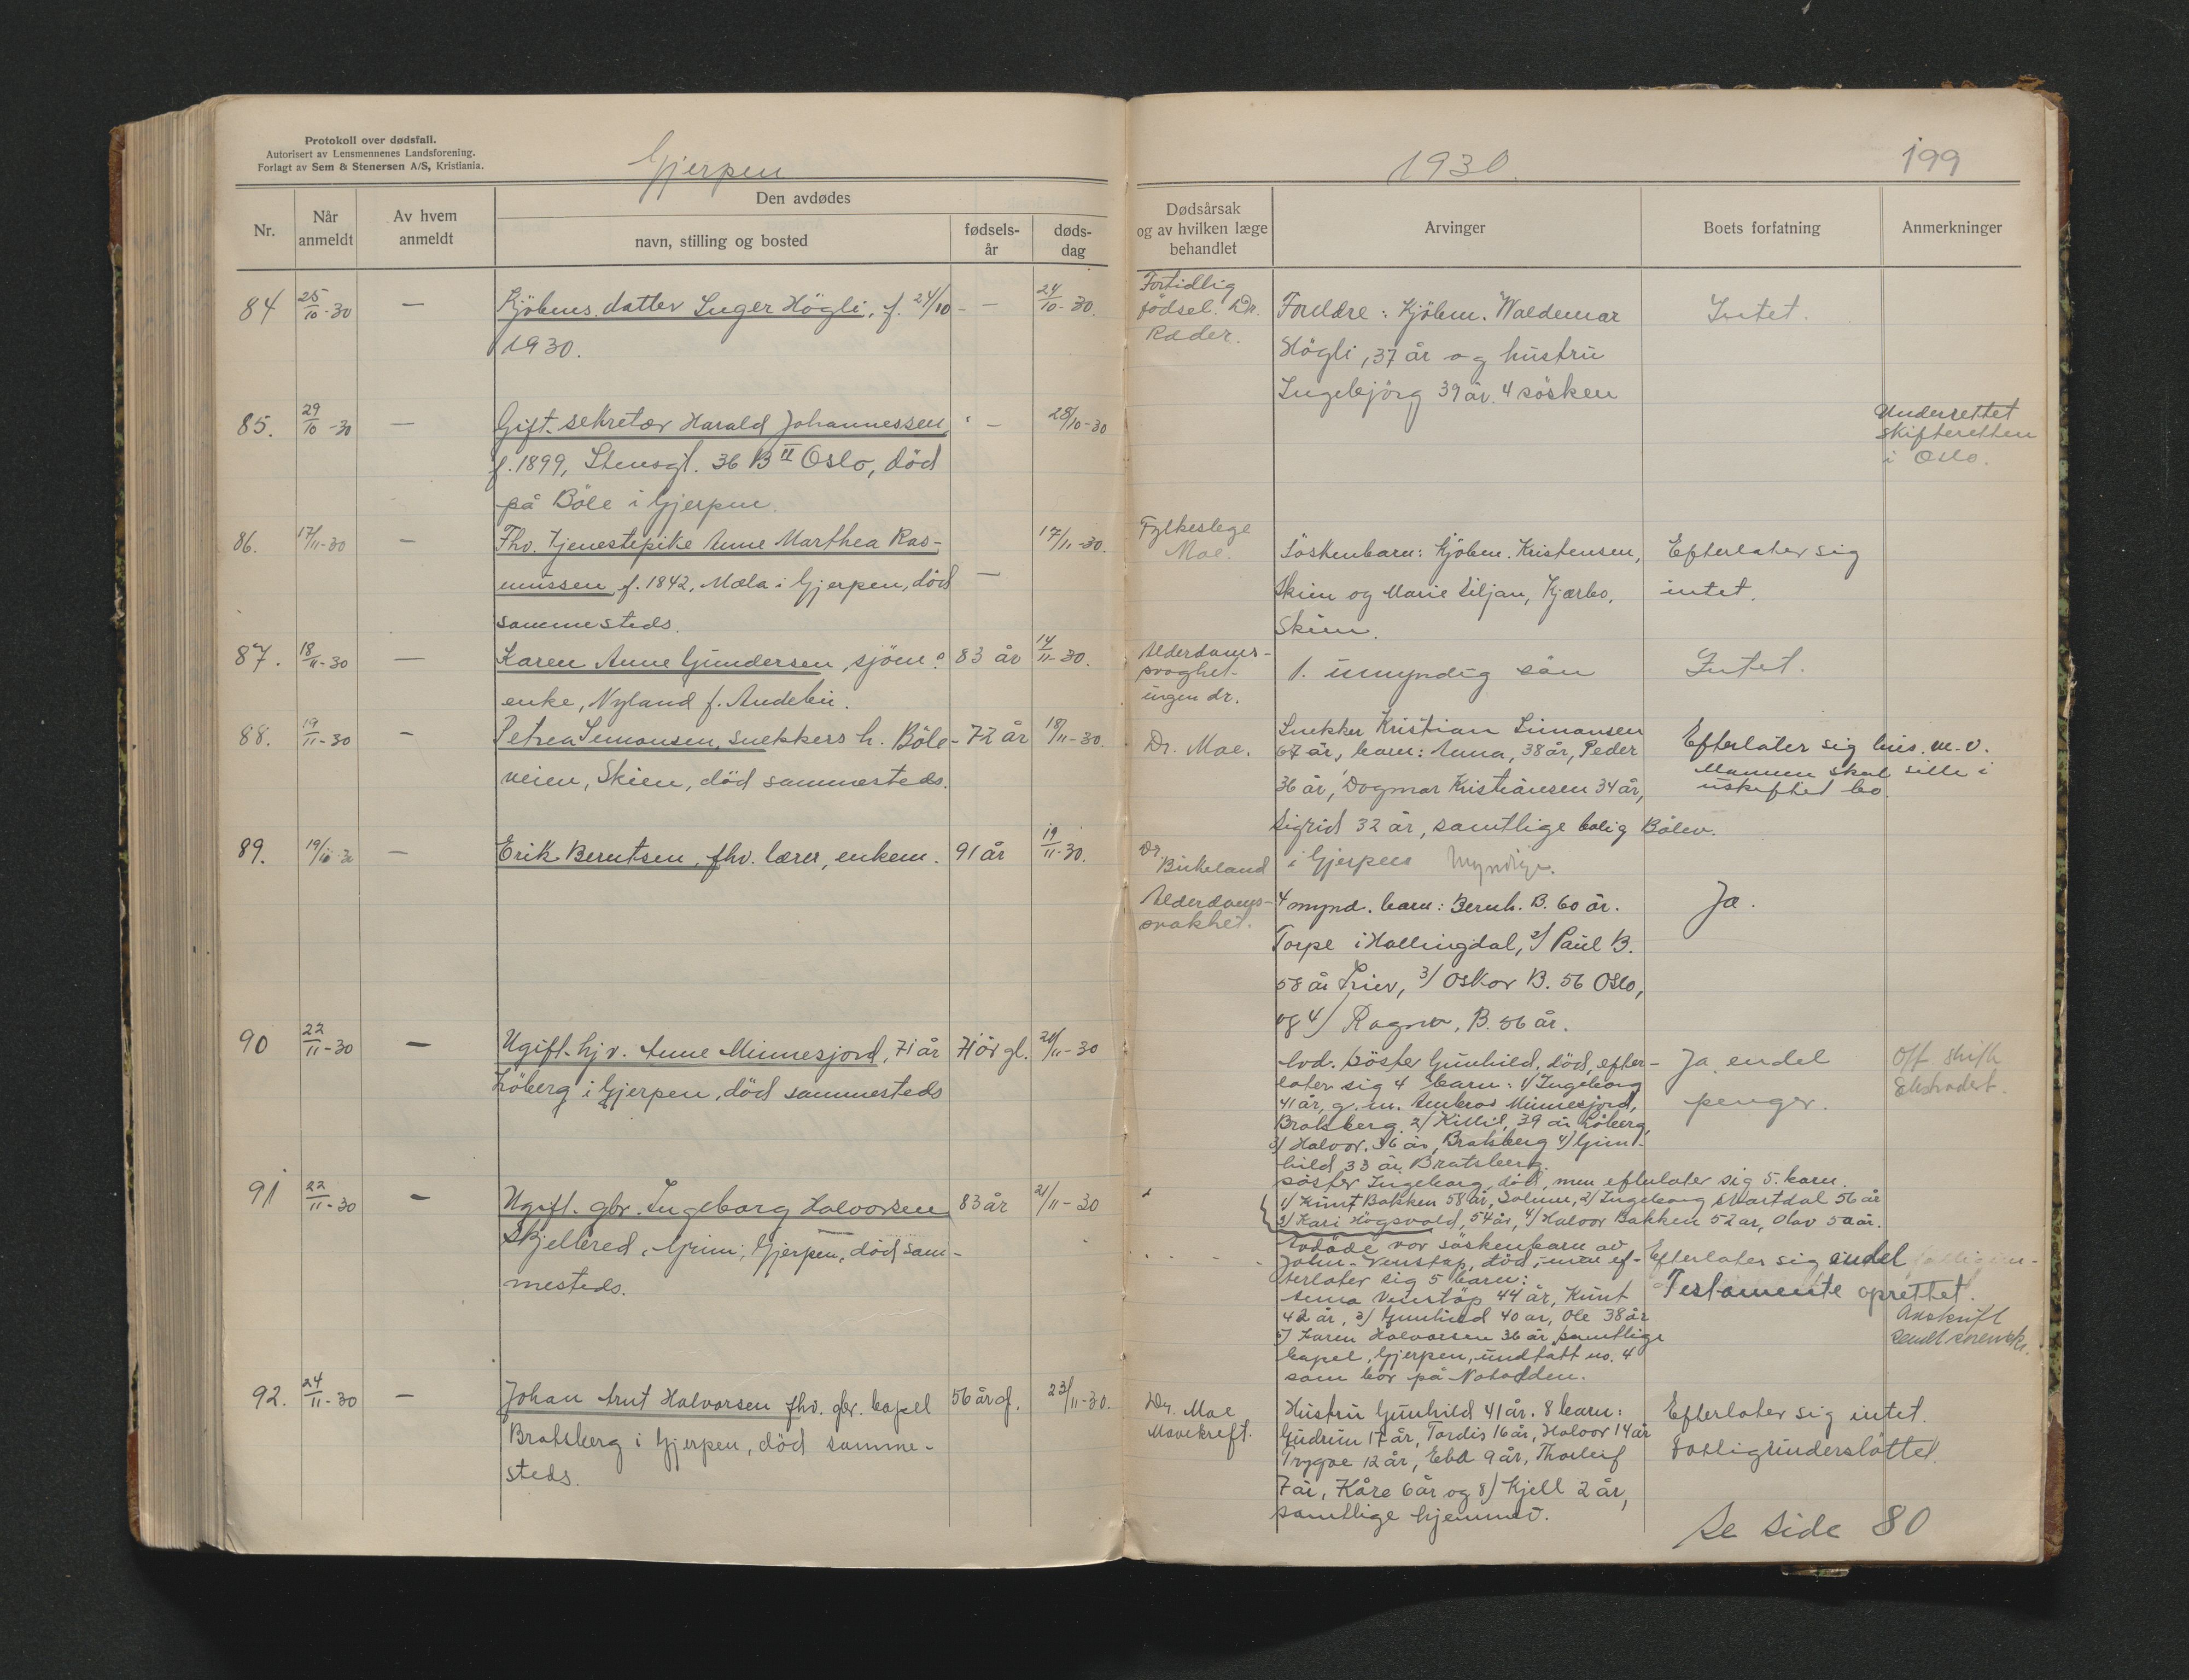 Protokoll over dødsfall.
Autorisert av Lensmennenes Landsforening.
Forlagt av Sem & Stenersen A/S, Kristiania.
Gjerpen
Nr.
Når anmeldt
Av hvem anmeldt
Den avdødes
navn, stilling og bosted
fødsels-år
døds-dag
84 25/10-30 — Kjöbms. datter Inger Högli, f. 24/10 - — 24/10-30.
1930.
85. 29/10-30 — Gift. sekretær Harald Johannessen, — 28/10-30
f. 1899, Stensgt. 36 B II Oslo, död
på Böle i Gjerpen.
86. 17/11-30 — Fhv. tjenestepike Anne Marthea Ras- 17/11-30.
mussen f. 1842, Mæla i Gjerpen, död —
sammesteds.
87. 18/11-30 — Karen Anne Gundersen, sjöm.s 83 år 14/11-30.
enke, Nyland f. Andebu.
88. 19/11-30 — Petrea Simonsen, snekkers h. Böle- 72 år 18/11-30.
veien, Skien, död sammesteds.
89. 19/11-30 — Erik Berntsen, fhv. lærer, enkem. 91 år 19/11-30.
90 22/11-30 — Ugift. hj v. Anne Minnesjord, 71 år 71 år gl. 20/11-30
Löberg i Gjerpen, död sammesteds
91 22/11-30 — Ugift. gbr. Ingeborg Halvorsen 83 år 21/11-30
Skjellered, Grini, Gjerpen, död sam-
mesteds.
92. 24/11-30 — Johan Arnt Halvorsen fhv. gbr. kapel 56 år gl. 23/11-30.
Bratsberg i Gjerpen, död samme-
steds.
1930.
199
Dødsårsak og av hvilken læge behandlet
Arvinger
Boets forfatning
Anmerkninger
Fortidlig
födsel. Dr.
Rader.
Foreldre: Kjöbm. Waldemar
Högli, 37 år og hustru
Ingebjörg 39 år. 4 sösken
Intet.
Underrettet
skifteretten
i Oslo.
Fylkeslege
Moe.
Söskenbarn: Kjöbm. Kristensen,
Skien og Marie Siljan, Kjærbo,
Skien.
Efterlater sig
intet.
Alderdoms-
svaghet-
ingen dr.
1. umyndig sön
Intet.
Dr. Moe.
Snekker Kristian Simonsen
67 år, barn: Anna, 38 år, Peder
36 år, Dagmar Kristiansen 34 år,
Sigrid 32 år, samtlige bolig Bölev.
i Gjerpen Myndige.
Efterlater sig hus m.v.
Mannen skal sitte i
uskiftet bo.
Dr.
Birkeland
Alderdoms-
svakhet.
4 mynd. barn: Bernh. B. 60 år.
Torpe i Hallingdal, 2/ Paul B.
58 år 3/ Oskar B. 56 Oslo,
og 4/ B. 56 år.
Ja.
Avd. söster Gunhild, död, efter-
later sig 4 barn: 1/ Ingeborg
41 år, g. m. Ambros Minnesjord,
Bratsberg 2/ Killid, 39 år Löberg,
3/ Halvor. 36 år, Bratsberg 4/ Gun-
hild 33 år Bratsberg.
söster Ingeborg, död, men efterlater sig 5. barn.
1/ Knut Bakken 58 år, Solum, 2/ Ingeborg Svartdal 56 år
3/ Kari Högsvold, 54 år, 4/ Halvor Bakken 52 år, Olav 50 år.
Ja, endel
penger.
Off. skifte
Ekstradert.
Avdöde var söskenbarn av
John Venstøp, död, men ef-
terlater sig 5 barn:
Anna Venstöp 44 år, Knut
42 år, 3/ Gunhild 40 år, Ole 38 år
5/ Karen Halvorsen 36 år, samtlige
kapel, Gjerpen, undtatt no. 4
som bor på Notodden.
Efterlater sig endel
Testamente oprettet.
Avskrift
sendt sorenskr.
Dr. Moe
Mavekreft.
Hustru Gunhild 41 år. 8 barn:
Gudrun 17 år, Tordis 16 år, Halvor 14 år
Trygve 12 år, Ebba 9 år, Thorleif
7 år, Kåre 6 år og 8/ Kjell 2 år,
samtlige hjemmev.
Efterlater sig intet.
Fattigunderstöttet.
Se side 80